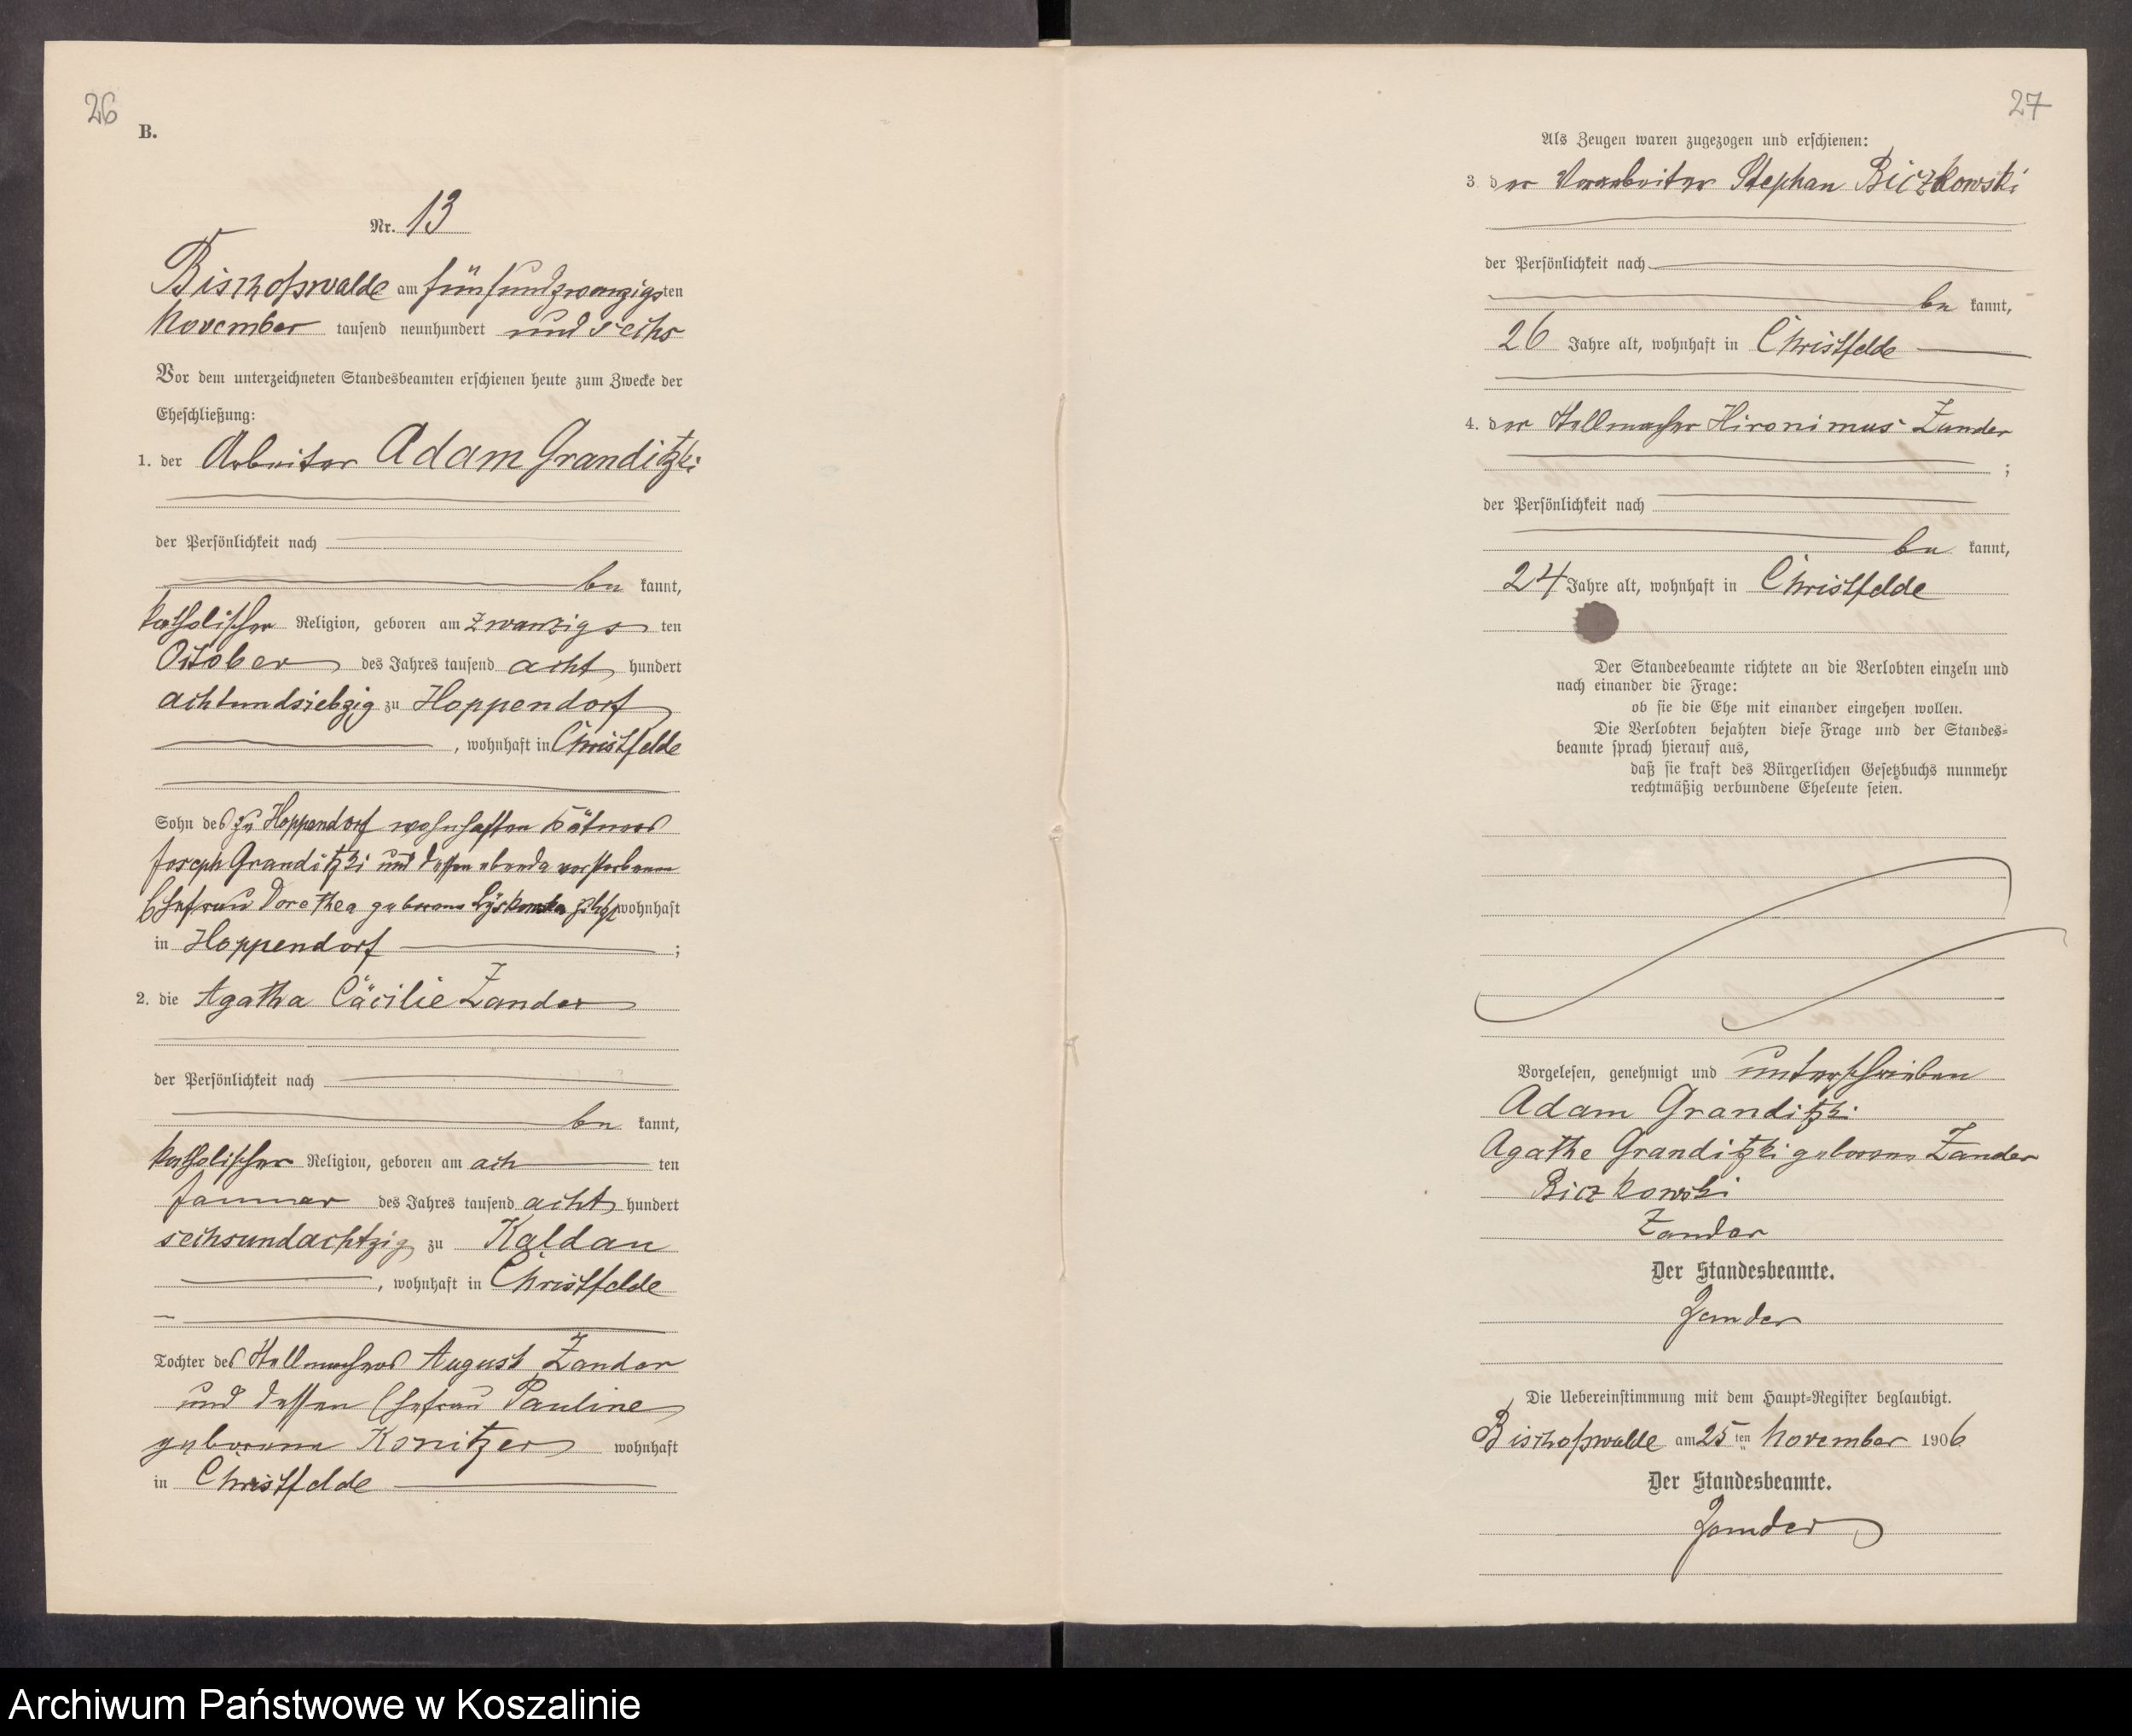 26
B.
Nr. 13
Bischofswalde am fünfundzwanzigsten
November tausend neunhundert und sechs
Vor dem unterzeichneten Standesbeamten erschienen heute zum Zwecke der
Eheschließung:
1. der Arbeiter Adam Granditzki
der Persönlichkeit nach
be kannt,
katholischer Religion, geboren am zwanzigs ten
October des Jahres tausend acht hundert
achtundsiebzig zu Hoppendorf
, wohnhaft in Christfelde
Sohn des zu Hoppendorf wohnhaften Kätners
Joseph Granditzki und dessen ebenda verstorbenen
Ehefrau Dorothea geborene wohnhaft
in Hoppendorf ;
2. die Agatha Cäcilie Zander
der Persönlichkeit nach
be kannt,
katholischer Religion, geboren am ach ten
Januar des Jahres tausend acht hundert
sechsundachtzig zu Kaldau
, wohnhaft in Christfelde
Tochter des Stellmachers August Zander
und dessen Ehefrau Pauline
geborene Konitzer wohnhaft
in Christfelde
27
Als Zeugen waren zugezogen und erschienen:
3. der Vorarbeiter Stephan Biczkowski
der Persönlichkeit nach
be kannt,
26 Jahre alt, wohnhaft in Christfelde
4. der Stellmacher Hironimus Zander
;
der Persönlichkeit nach
be kannt,
24 Jahre alt, wohnhaft in Christfelde
Der Standesbeamte richtete an die Verlobten einzeln und
nach einander die Frage:
ob sie die Ehe mit einander eingehen wollen.
Die Verlobten bejahten diese Frage und der Standes-
beamte sprach hierauf aus,
daß sie kraft des Bürgerlichen Gesetzbuchs nunmehr
rechtmäßig verbundene Eheleute seien.
Vorgelesen, genehmigt und unterschrieben
Adam Granditzki
Agathe Granditzki geborene Zander
Biczkowski
Zander
Der Standesbeamte.
Zander
Die Uebereinstimmung mit dem Haupt-Register beglaubigt.
Bischofswalde am 25 ten November 1906
Der Standesbeamte.
Zander
Archiwum Państwowe w Koszalinie